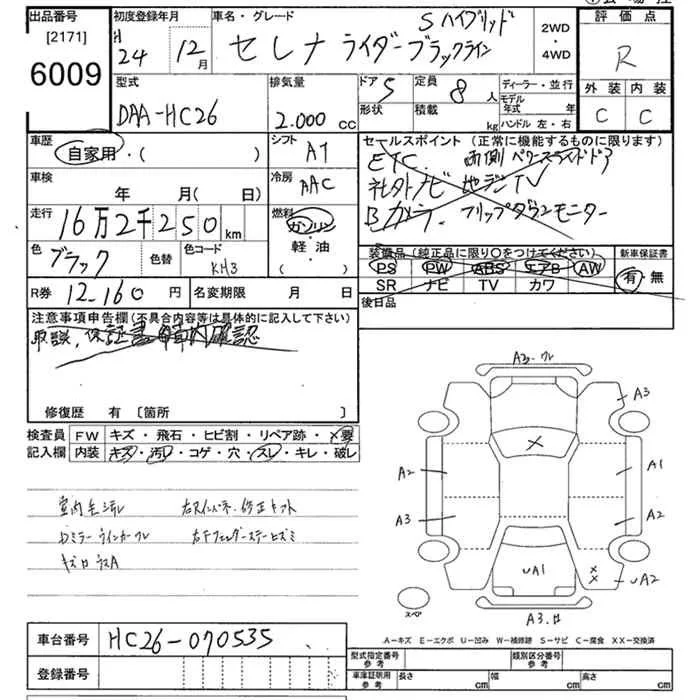 出品番号 初度登録年月 車名・グレード Sハイブリッド 2WD 評価点
[2171] H 24年 12月 セレナ ライダーブラックライン ・4WD R
6009
型式 排気量 ドア 5 定員 8人 ディーラー・並行 外装 内装
DAA-HC26 2.000 cc 形状 積載 kg モデル年式 年 C C
ハンドル 左・右
車歴 自家用・( ) シフト AT セールスポイント (正常に機能するものに限ります)
ETC. 両側パワースライドドア
車検 年 月(日) 冷房 AAC 社外ナビ 地デジTV
走行 16万2千250km 燃料 ガソリン 軽・油 ( ) Bカメラ. フリップダウンモニター
色 ブラック 色替 色コード KH3 装備品(純正品に限り○をつけてください) 新車保証書
PS PW ABS エアB AW 有・無
SR ナビ TV カワ
R券 12-160円 名変期限 月 日 後日品
注意事項申告欄(不具合内容等は具体的に記入して下さい)
取説,保証書
確認
修復歴 有 [箇所 ]
検査員 FW キズ・飛石・ヒビ割・リペア跡・×要
記入欄 内装 キズ・汚レ・コゲ・穴・スレ・キレ・破レ
A3
A3
A2 A1
A3 A2
UA1
UA2
スペア
室内キズ汚レ
Dミラーウインカーワレ
車台番号 HC26-070535
登録番号
A－キズ E－エクボ U－凹み W－補修跡 S－サビ C－腐食 XX－交換済
型式指定番号 参考 類別区分番号 参考
車庫証明用 参考 長さ cm 幅 cm 高さ cm